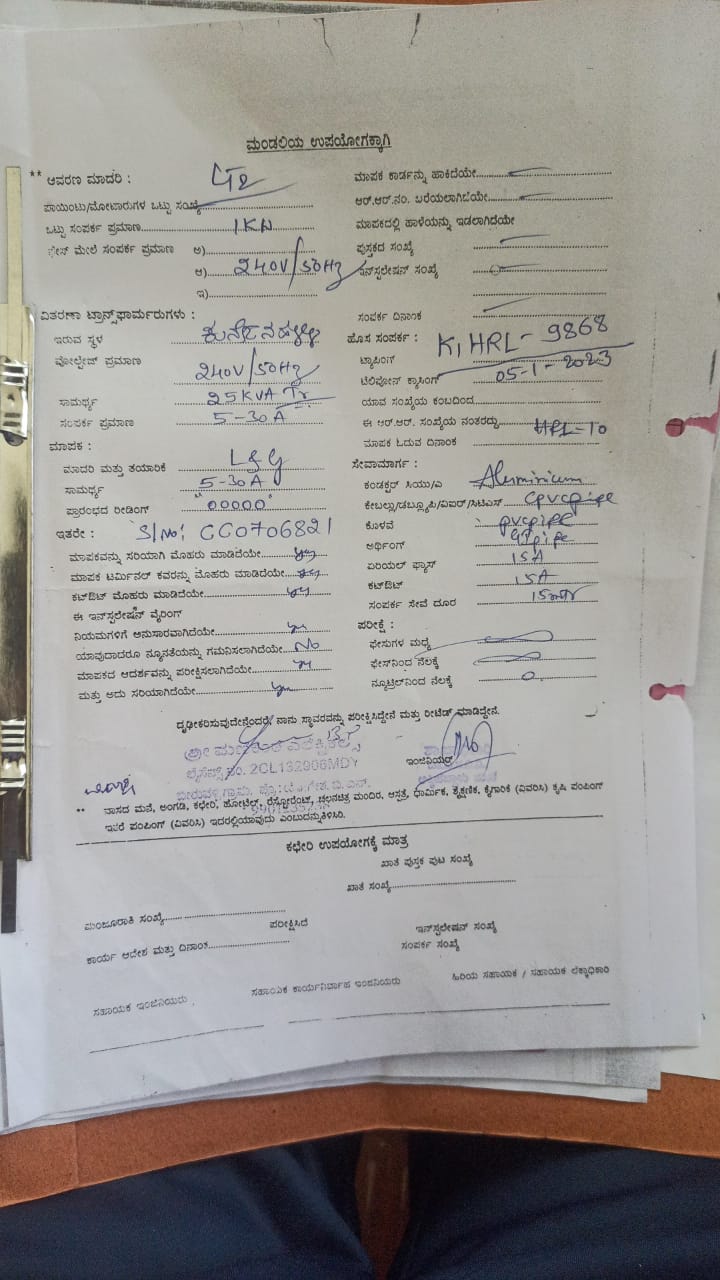 ಮಂಡಲಿಯ ಉಪಯೋಗಕ್ಕಾಗಿ
** ಆವರಣ ಮಾದರಿ :
ಮಾಪಕ ಕಾರ್ಡನ್ನು ಹಾಕಿದೆಯೇ
ಪಾಯಿಂಟು/ಮೋಟಾರುಗಳ ಒಟ್ಟು ಸಂಖ್ಯೆ
ಆರ್.ಆರ್.ನಂ. ಬರೆಯಲಾಗಿದೆಯೇ
ಒಟ್ಟು ಸಂಪರ್ಕ ಪ್ರಮಾಣ 1KW
ಮಾಪಕದಲ್ಲಿ ಹಾಳೆಯನ್ನು ಇಡಲಾಗಿದೆಯೇ
ಫೇಸ್ ಮೇಲೆ ಸಂಪರ್ಕ ಪ್ರಮಾಣ ಅ)
ಪುಸ್ತಕದ ಸಂಖ್ಯೆ
ಆ) 240V/50Hz
ಇನ್‌ಸ್ಟಲೇಷನ್ ಸಂಖ್ಯೆ
ಇ)
ವಿತರಣಾ ಟ್ರಾನ್ಸ್‌ಫಾರ್ಮರುಗಳು :
ಸಂಪರ್ಕ ದಿನಾಂಕ
ಇರುವ ಸ್ಥಳ
ಹೊಸ ಸಂಪರ್ಕ : KIHRL-9868
ವೋಲ್ಟೇಜ್ ಪ್ರಮಾಣ 240V/50Hz
ಟ್ಯಾಪಿಂಗ್
05-1-2023
ಟೆಲಿಫೋನ್ ಕ್ರಾಸಿಂಗ್
ಸಾಮರ್ಥ್ಯ 25KVA Tr
ಯಾವ ಸಂಖ್ಯೆಯ ಕಂಬದಿಂದ
ಸಂಪರ್ಕ ಪ್ರಮಾಣ 5-30A
ಈ ಆರ್.ಆರ್. ಸಂಖ್ಯೆಯ ನಂತರದ್ದು
ಮಾಪಕ :
ಮಾಪಕ ಓದುವ ದಿನಾಂಕ
ಮಾದರಿ ಮತ್ತು ತಯಾರಿಕೆ L&G
ಸೇವಾಮಾರ್ಗ :
ಸಾಮರ್ಥ್ಯ 5-30A
ಕಂಡಕ್ಟರ್ ಸಿಯು/ಎ Aluminium
ಪ್ರಾರಂಭದ ರೀಡಿಂಗ್ "00000"
ಕೇಬಲ್ಲು/ಡಬ್ಲ್ಯೂಪಿ/ಐಐರ್/ಸಿಟಿಎಸ್ cpvcpipe
ಇತರೇ : S/No: CC0706821
ಕೊಳವೆ pvcpipe
ಮಾಪಕವನ್ನು ಸರಿಯಾಗಿ ಮೊಹರು ಮಾಡಿದೆಯೇ yes
ಅರ್ಥಿಂಗ್ GIpipe
ಮಾಪಕ ಟರ್ಮಿನಲ್ ಕವರನ್ನು ಮೊಹರು ಮಾಡಿದೆಯೇ yes
ಏರಿಯಲ್ ಫ್ಯೂಸ್ 15A
ಕಟ್‌ಔಟ್ ಮೊಹರು ಮಾಡಿದೆಯೇ yes
ಕಟ್‌ಔಟ್ 15A
ಈ ಇನ್‌ಸ್ಟಲೇಷನ್ ವೈರಿಂಗ್
ಸಂಪರ್ಕ ಸೇವೆ ದೂರ 15mtr
ನಿಯಮಗಳಿಗೆ ಅನುಸಾರವಾಗಿದೆಯೇ yes
ಪರೀಕ್ಷೆ :
ಯಾವುದಾದರೂ ನ್ಯೂನತೆಯನ್ನು ಗಮನಿಸಲಾಗಿದೆಯೇ NO
ಫೇಸುಗಳ ಮಧ್ಯೆ
ಮಾಪಕದ ಆದರ್ಶವನ್ನು ಪರೀಕ್ಷಿಸಲಾಗಿದೆಯೇ yes
ಫೇಸ್‌ನಿಂದ ನೆಲಕ್ಕೆ
ಮತ್ತು ಅದು ಸರಿಯಾಗಿದೆಯೇ yes
ನ್ಯೂಟ್ರಲ್‌ನಿಂದ ನೆಲಕ್ಕೆ 0
ದೃಢೀಕರಿಸುವುದೇನೆಂದರೆ, ನಾನು ಸ್ಥಾವರವನ್ನು ಪರೀಕ್ಷಿಸಿದ್ದೇನೆ ಮತ್ತು ರೀಟೆಡ್ ಮಾಡಿದ್ದೇನೆ.
ಲೈಸೆನ್ಸ್ ನಂ. 2CL132906MDY
ಇಂಜಿನಿಯರ್
** ವಾಸದ ಮನೆ, ಅಂಗಡಿ, ಕಛೇರಿ, ಹೋಟೆಲ್, ರೆಸ್ಟೋರೆಂಟ್, ಚಲನಚಿತ್ರ ಮಂದಿರ, ಆಸ್ಪತ್ರೆ, ಧಾರ್ಮಿಕ, ಶೈಕ್ಷಣಿಕ, ಕೈಗಾರಿಕೆ (ವಿವರಿಸಿ) ಕೃಷಿ ಪಂಪಿಂಗ್
ಇತರೆ ಪಂಪಿಂಗ್ (ವಿವರಿಸಿ) ಇದರಲ್ಲಿಯಾವುದು ಎಂಬುದನ್ನುತಿಳಿಸಿರಿ.
ಕಛೇರಿ ಉಪಯೋಗಕ್ಕೆ ಮಾತ್ರ
ಖಾತೆ ಪುಸ್ತಕ ಪುಟ ಸಂಖ್ಯೆ
ಖಾತೆ ಸಂಖ್ಯೆ
ಮಂಜೂರಾತಿ ಸಂಖ್ಯೆ
ಪರೀಕ್ಷಿಸಿದೆ
ಇನ್‌ಸ್ಟಲೇಷನ್ ಸಂಖ್ಯೆ
ಕಾರ್ಯ ಆದೇಶ ಮತ್ತು ದಿನಾಂಕ
ಸಂಪರ್ಕ ಸಂಖ್ಯೆ
ಸಹಾಯಕ ಇಂಜಿನಿಯರು
ಸಹಾಯಕ ಕಾರ್ಯನಿರ್ವಾಹ ಇಂಜಿನಿಯರು
ಹಿರಿಯ ಸಹಾಯಕ / ಸಹಾಯಕ ಲೆಕ್ಕಾಧಿಕಾರಿ